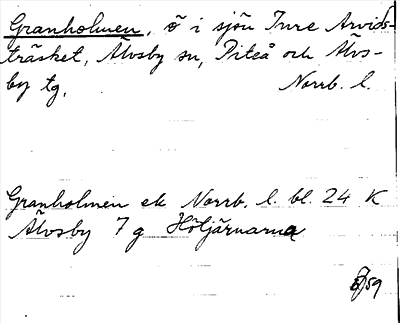 Granholmen, ö i sjön Inre Arvids-
träsket, Älvsby sn, Piteå och Älvs-
by tg, Norrb. l.
Granholmen ek Norrb. l. bl. 24 K
Älvsby 7 g Höljärnarna
/59